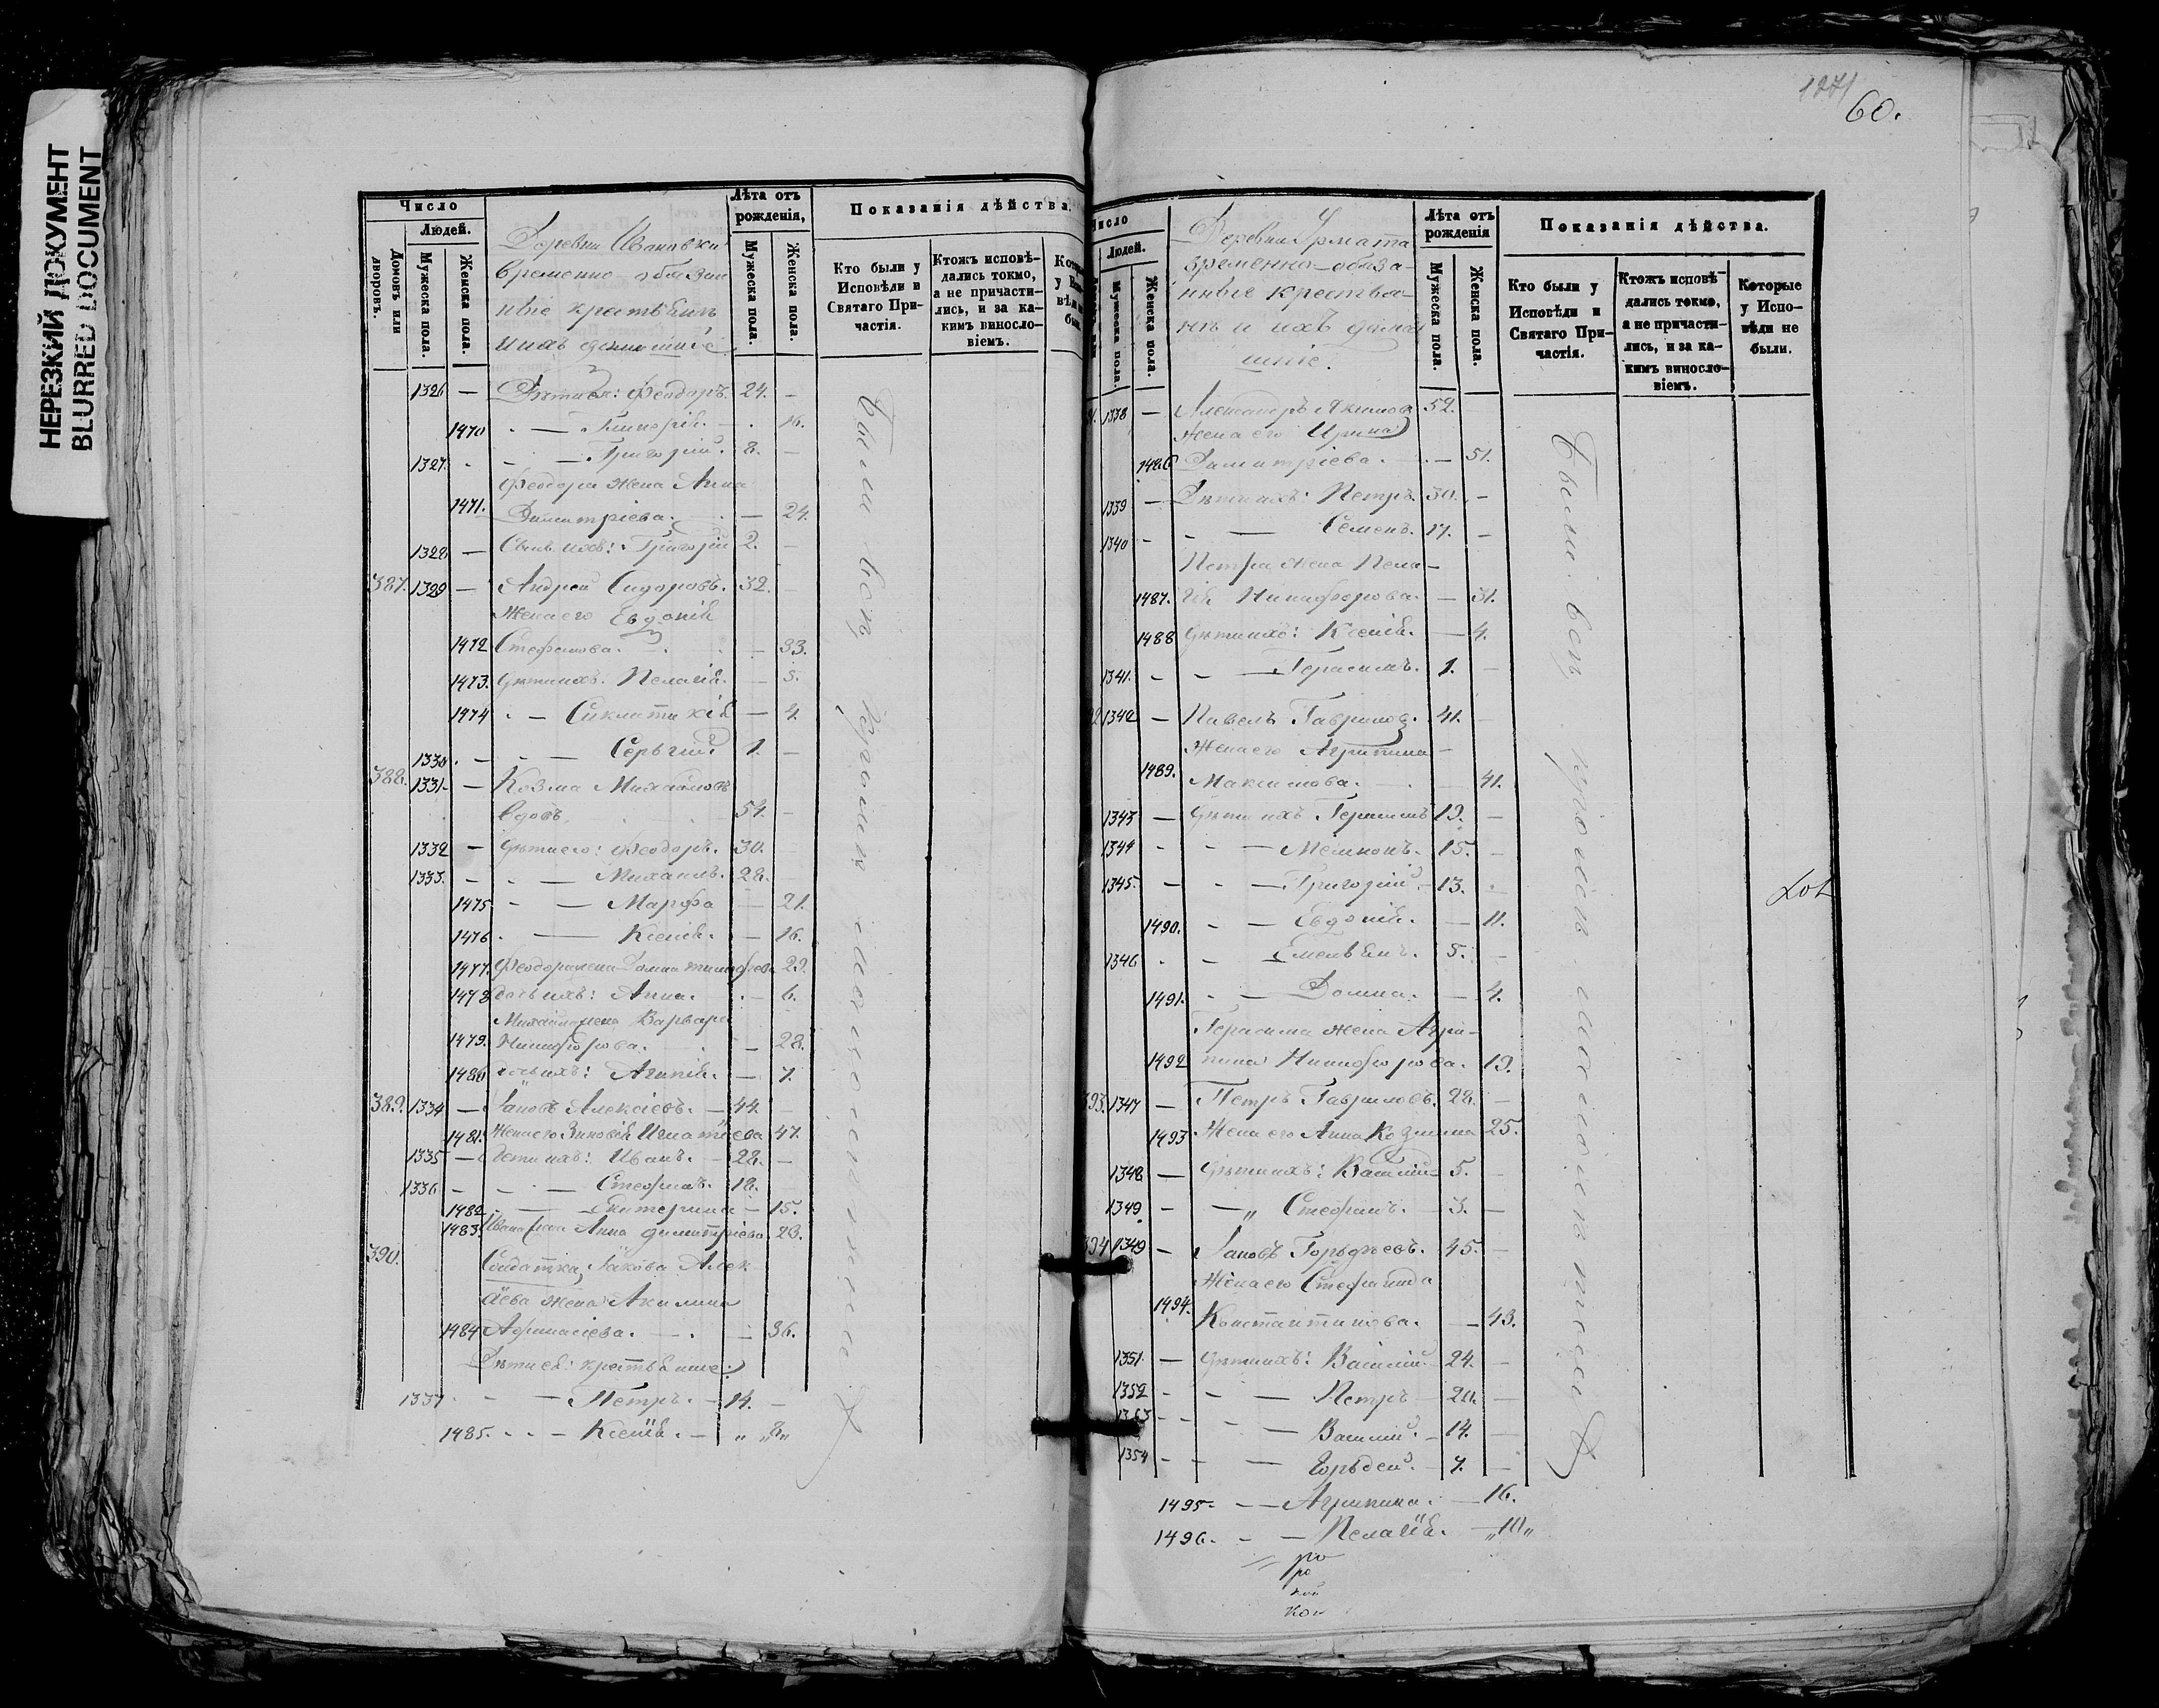 НЕРЕЗКИЙ ДОКУМЕНТ
BLURRED DOCUMENT
Число
Людей.
Домовъ или дворовъ.
Мужеска пола.
Женска пола.
Деревни Ивановки
временно-обязан
ные крестьянъ
ихъ домашніе
Лѣта отъ рожденія,
Мужеска пола.
Женска пола.
Показанія дѣйства.
Кто были у Исповѣди и Святаго При-
частія.
Ктожъ исповѣ-
дались токмо,
а не причасти-
лись, и за ка-
кимъ винословіемъ.
1326 — Дѣти ея: Феодоръ. 24. —
1470 . — Гликерія. — . 16.
1327. . — Григорій. 8. —
Феодора жена Анна
1471. Димитріева. — 24.
1328 — Сынъ ихъ: Григорій 2. —
387. 1329 — Андрей Сидоровъ. 32. —
Жена его Евдокія
1472 Стефанова. — 33.
1473. Дѣти ихъ: Пелагія. — 5.
1474 . — Синклитикія — 4.
1330 . — — Сергій 1. —
388. 1331. — Козма Михайловъ
вдовъ. 54. —
1332 — Дѣти его: Феодоръ. 30.
1333. — . — Михаилъ. 28.
1475 - — Марфа — 21.
1476 . — Ксенія. — 16.
1477. Феодора жена Домна Тимофеева 29.
1478 дочь ихъ: Анна. . — 6.
Михаила жена Варвара
1479. Никифорова. — 28.
1480 дочь ихъ: Агапія. — 7.
389. 1334 — Іаковъ Алексіевъ. — 44. —
1481. Жена его Зиновія Игнатіева 47.
1335 — Дети ихъ: Иванъ. — 28. —
1336 — - — Стефанъ. 18. —
1482 . — Екатерина — 15.
1483. Ивана жена Анна Димитріева 23.
390. Солдатка, Іакова Алек
сіева жена Акилина
1484 Афанасіева. — . — 36.
Дѣти ея: крестьяне:
1337 . - — Петръ. — 14. —
1485. - - - Ксенія. — „ „8„
были всѣ кромѣ малолетнихъ
1271
60.
Число
Людей.
Мужеска пола.
Женска пола.
Деревни Урмата
временно-обяза-
нные крестья-
не и ихъ дома
шніе.
Лѣта отъ рожденія
Мужеска пола.
Женска пола.
Показанія дѣйства.
Кто были у Исповѣди и Святаго При-
частія.
Ктожъ исповѣ-
дались токмо,
а не причасти-
лись, и за ка-
кимъ винословіемъ.
Которые у Испо-
вѣди не были.
91. 1338 — Александръ Акимовъ 52.
Жена его Ирина
1486 Димитріева. — . — 51.
1339 — Дѣти ихъ: Петръ. 30. —
1340 - - — Семенъ. 17. —
Петра жена Пела-
1487. гія Никифорова. — 31.
1488 Дѣти ихъ: Ксенія. — 4.
1341. - - — Герасимъ. 1. —
92 1342 — Павелъ Гавриловъ. 41. —
Жена его Агрипина —
1489. Максимова. — 41.
1343 — Дѣти ихъ Герасимъ 19. —
1344 - - — Мелитонъ. 15. —
1345. — - — Григорій — 13. .
1490. - — Евдокія. — 11.
1346 . - — Емельянъ. 5. —
1491. - — Домна. — 4.
Герасима жена Агри-
1492 пина Никифорова. 19.
393. 1347 — Петръ Гавриловъ. 28. —
1493 Жена его Анна Козмина 25.
1348 — Дѣти ихъ: Василій — 5. —
1349. - — „ Стефанъ. — 3. —
394 1349 — Іаковъ Гордѣевъ. 45. —
Жена его Стефанида
1494. Константинова. — 43.
1351. — Дѣти ихъ: Василій 24. —
1352 - - — Петръ — 20. —
1353 - - — Василій. — 14. —
1354 - - — Гордей. — 7. —
1495. - — Агрипина. — 16.
1496. - — Пелагія. — „10„
ро
ро
кой
кои
были всѣ кромѣ малолетнихъ